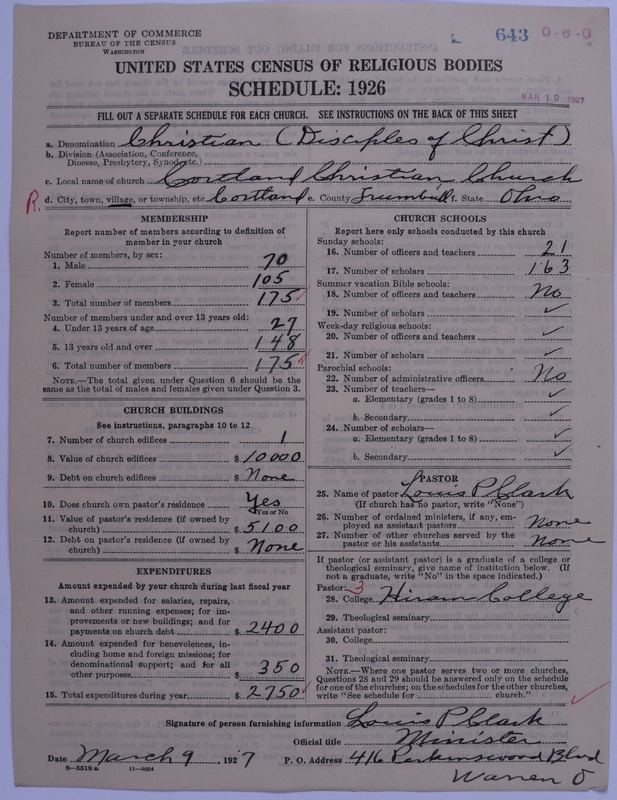 DEPARTMENT OF COMMERCE
BUREAU OF THE CENSUS
WASHINGTON
643 0-6-0
UNITED STATES CENSUS OF RELIGIOUS BODIES
SCHEDULE: 1926
MAR 10 1927
FILL OUT A SEPARATE SCHEDULE FOR EACH CHURCH. SEE INSTRUCTIONS ON THE BACK OF THIS SHEET
a. Denomination Christian (Disciples of Christ)
b. Division (Association, Conference,
Diocese, Presbytery, Synod, etc.)
c. Local name of church Cortland Christian Church
R. d. City, town, village, or township, etc. Cortland e. County Trumbull f. State Ohio
MEMBERSHIP
Report number of members according to definition of
member in your church
Number of members, by sex:
1. Male 70
2. Female 105
3. Total number of members 175
Number of members under and over 13 years old:
4. Under 13 years of age 27
5. 13 years old and over 148
6. Total number of members 175
NOTE.—The total given under Question 6 should be the
same as the total of males and females given under Question 3.
CHURCH BUILDINGS
See instructions, paragraphs 10 to 12
7. Number of church edifices 1
8. Value of church edifices $ 10000
9. Debt on church edifices $ None
10. Does church own pastor's residence Yes
Yes or No
11. Value of pastor's residence (if owned by
church) $ 5100
12. Debt on pastor's residence (if owned by
church) $ None
EXPENDITURES
Amount expended by your church during last fiscal year
13. Amount expended for salaries, repairs,
and other running expenses; for im-
provements or new buildings; and for
payments on church debt $ 2400
14. Amount expended for benevolences, in-
cluding home and foreign missions; for
denominational support; and for all
other purposes $ 350
15. Total expenditures during year $ 2750
CHURCH SCHOOLS
Report here only schools conducted by this church
Sunday schools:
16. Number of officers and teachers 21
17. Number of scholars 163
Summer vacation Bible schools:
18. Number of officers and teachers No
19. Number of scholars ✓
Week-day religious schools:
20. Number of officers and teachers ✓
21. Number of scholars ✓
Parochial schools:
22. Number of administrative officers No
23. Number of teachers—
a. Elementary (grades 1 to 8) ✓
b. Secondary ✓
24. Number of scholars—
a. Elementary (grades 1 to 8) ✓
b. Secondary ✓
PASTOR
25. Name of pastor Louis P Clark
(If church has no pastor, write "None")
26. Number of ordained ministers, if any, em-
ployed as assistant pastors None
27. Number of other churches served by the
pastor or his assistants None
If pastor (or assistant pastor) is a graduate of a college or
theological seminary, give name of institution below. (If
not a graduate, write "No" in the space indicated.)
Pastor: 3
28. College Hiram College
29. Theological seminary
Assistant pastor:
30. College
31. Theological seminary
NOTE.—Where one pastor serves two or more churches,
Questions 28 and 29 should be answered only on the schedule
for one of the churches; on the schedules for the other churches,
write "See schedule for church."
Signature of person furnishing information Louis P Clark
Official title Minister
Date March 9, 1927 P. O. Address 416 Perkinswood Blvd
8—5518a 11—9034
Warren O